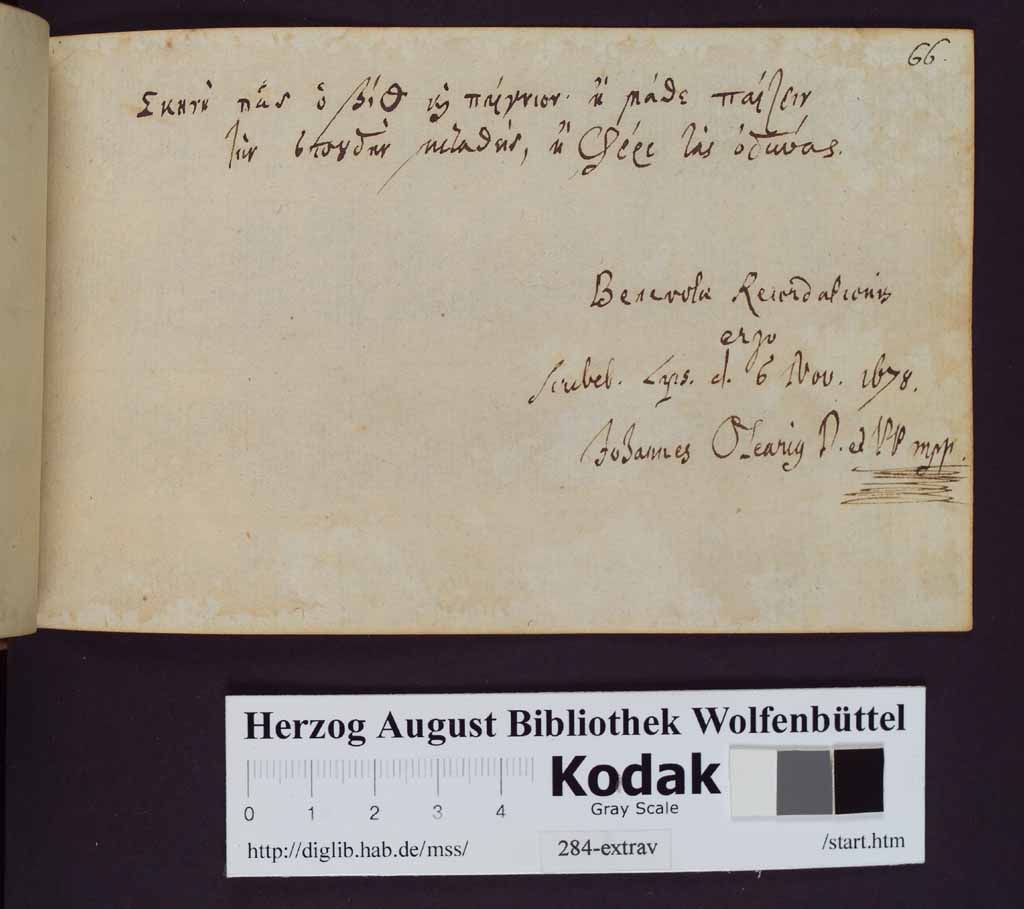 66.
Σκηνὴ πᾶς ὁ βίος καὶ παίγνιον· ἢ μάθε παίζειν
τὴν σπουδὴν μεταθεὶς, ἢ φέρε τὰς ὀδύνας.
Benevolæ Recordationis
ergo
scribeb. Lips. d. 6 Nov. 1678.
Johannes Olearius D. et PP mpp.
Herzog August Bibliothek Wolfenbüttel
Kodak
Gray Scale
0 1 2 3 4
http://diglib.hab.de/mss/ 284-extrav /start.htm